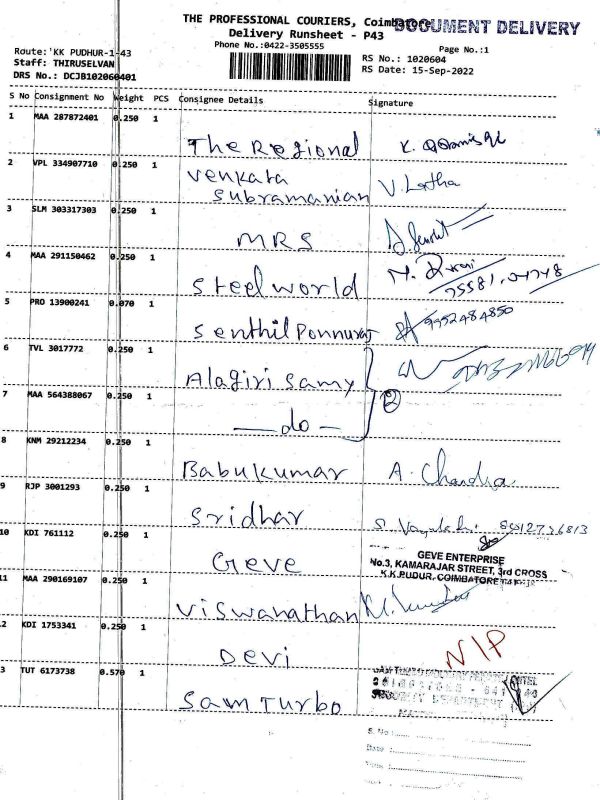 THE PROFESSIONAL COURIERS, Coimbatore
DOCUMENT DELIVERY
Delivery Runsheet - P43
Phone No.:0422-3505555
Page No.:1
Route:'KK PUDHUR-1-43
RS No.: 1020604
Staff: THIRUSELVAN
RS Date: 15-Sep-2022
DRS No.: DCJB102060401
S No Consignment No Weight PCS Consignee Details Signature
1 MAA 287872401 0.250 1 The Regional K.
2 VPL 334907710 0.250 1 Venkata Subramanian V. Latha
3 SLM 303317303 0.250 1 MRS
4 MAA 291150462 0.250 1 Steel world
75581.04748
5 PRO 13900241 0.070 1 Senthil Ponnuraj 9952484850
6 TVL 3017772 0.250 1 Alagiri Samy
7 MAA 564388067 0.250 1 — do — 2
8 KNM 29212234 0.250 1 Babukumar A. Chandra
9 RJP 3001293 0.250 1 Sridhar
10 KDI 761112 0.250 1 Geve
GEVE ENTERPRISE
No.3, KAMARAJAR STREET, 3rd CROSS
K.K.PUDUR, COIMBATORE
11 MAA 290169107 0.250 1 Viswanathan
2 KDI 1753341 0.250 1 Devi N/P
3 TUT 6173738 0.570 1 Sam Turbo
S. No :
Date :
Time :